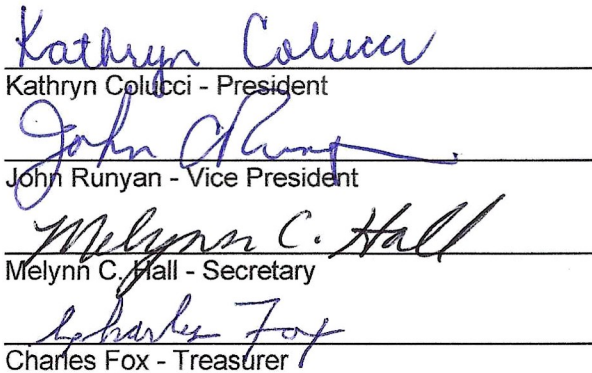 Kathryn Colucci
Kathryn Colucci - President
John C Runyan
John Runyan - Vice President
Melynn C. Hall
Melynn C. Hall - Secretary
Charles Fox
Charles Fox - Treasurer